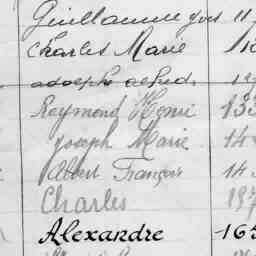 Guillaume Yves 11
Charles Marie
adolphe alfred
Raymond Henri 133
Joseph Marie 14
Albert François 14
Charles 197
Alexandre 165